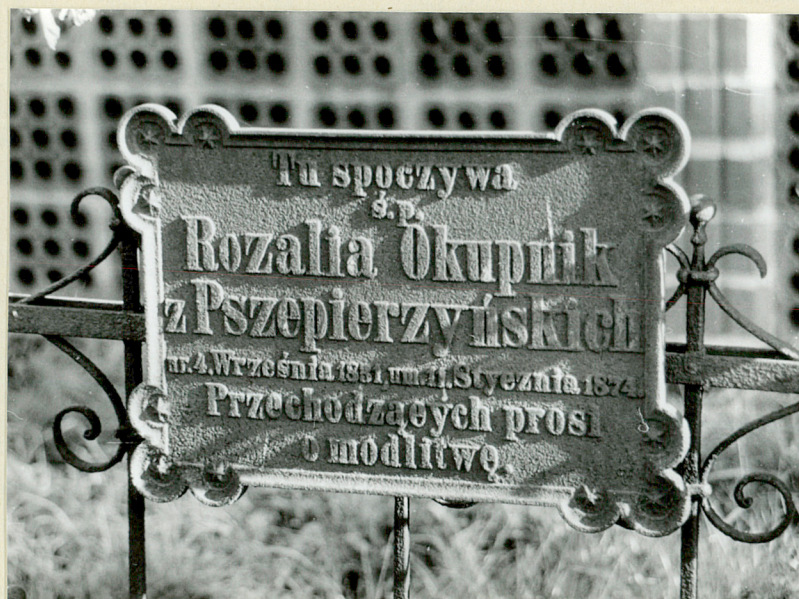 Tu spoczywa
ś.p.
Rozalia Okupnik
z Pszepierzyńskich
ur. 4, Września 1851, um. 11, Stycznia 1874.
Przechodzących prosi
o modlitwę.